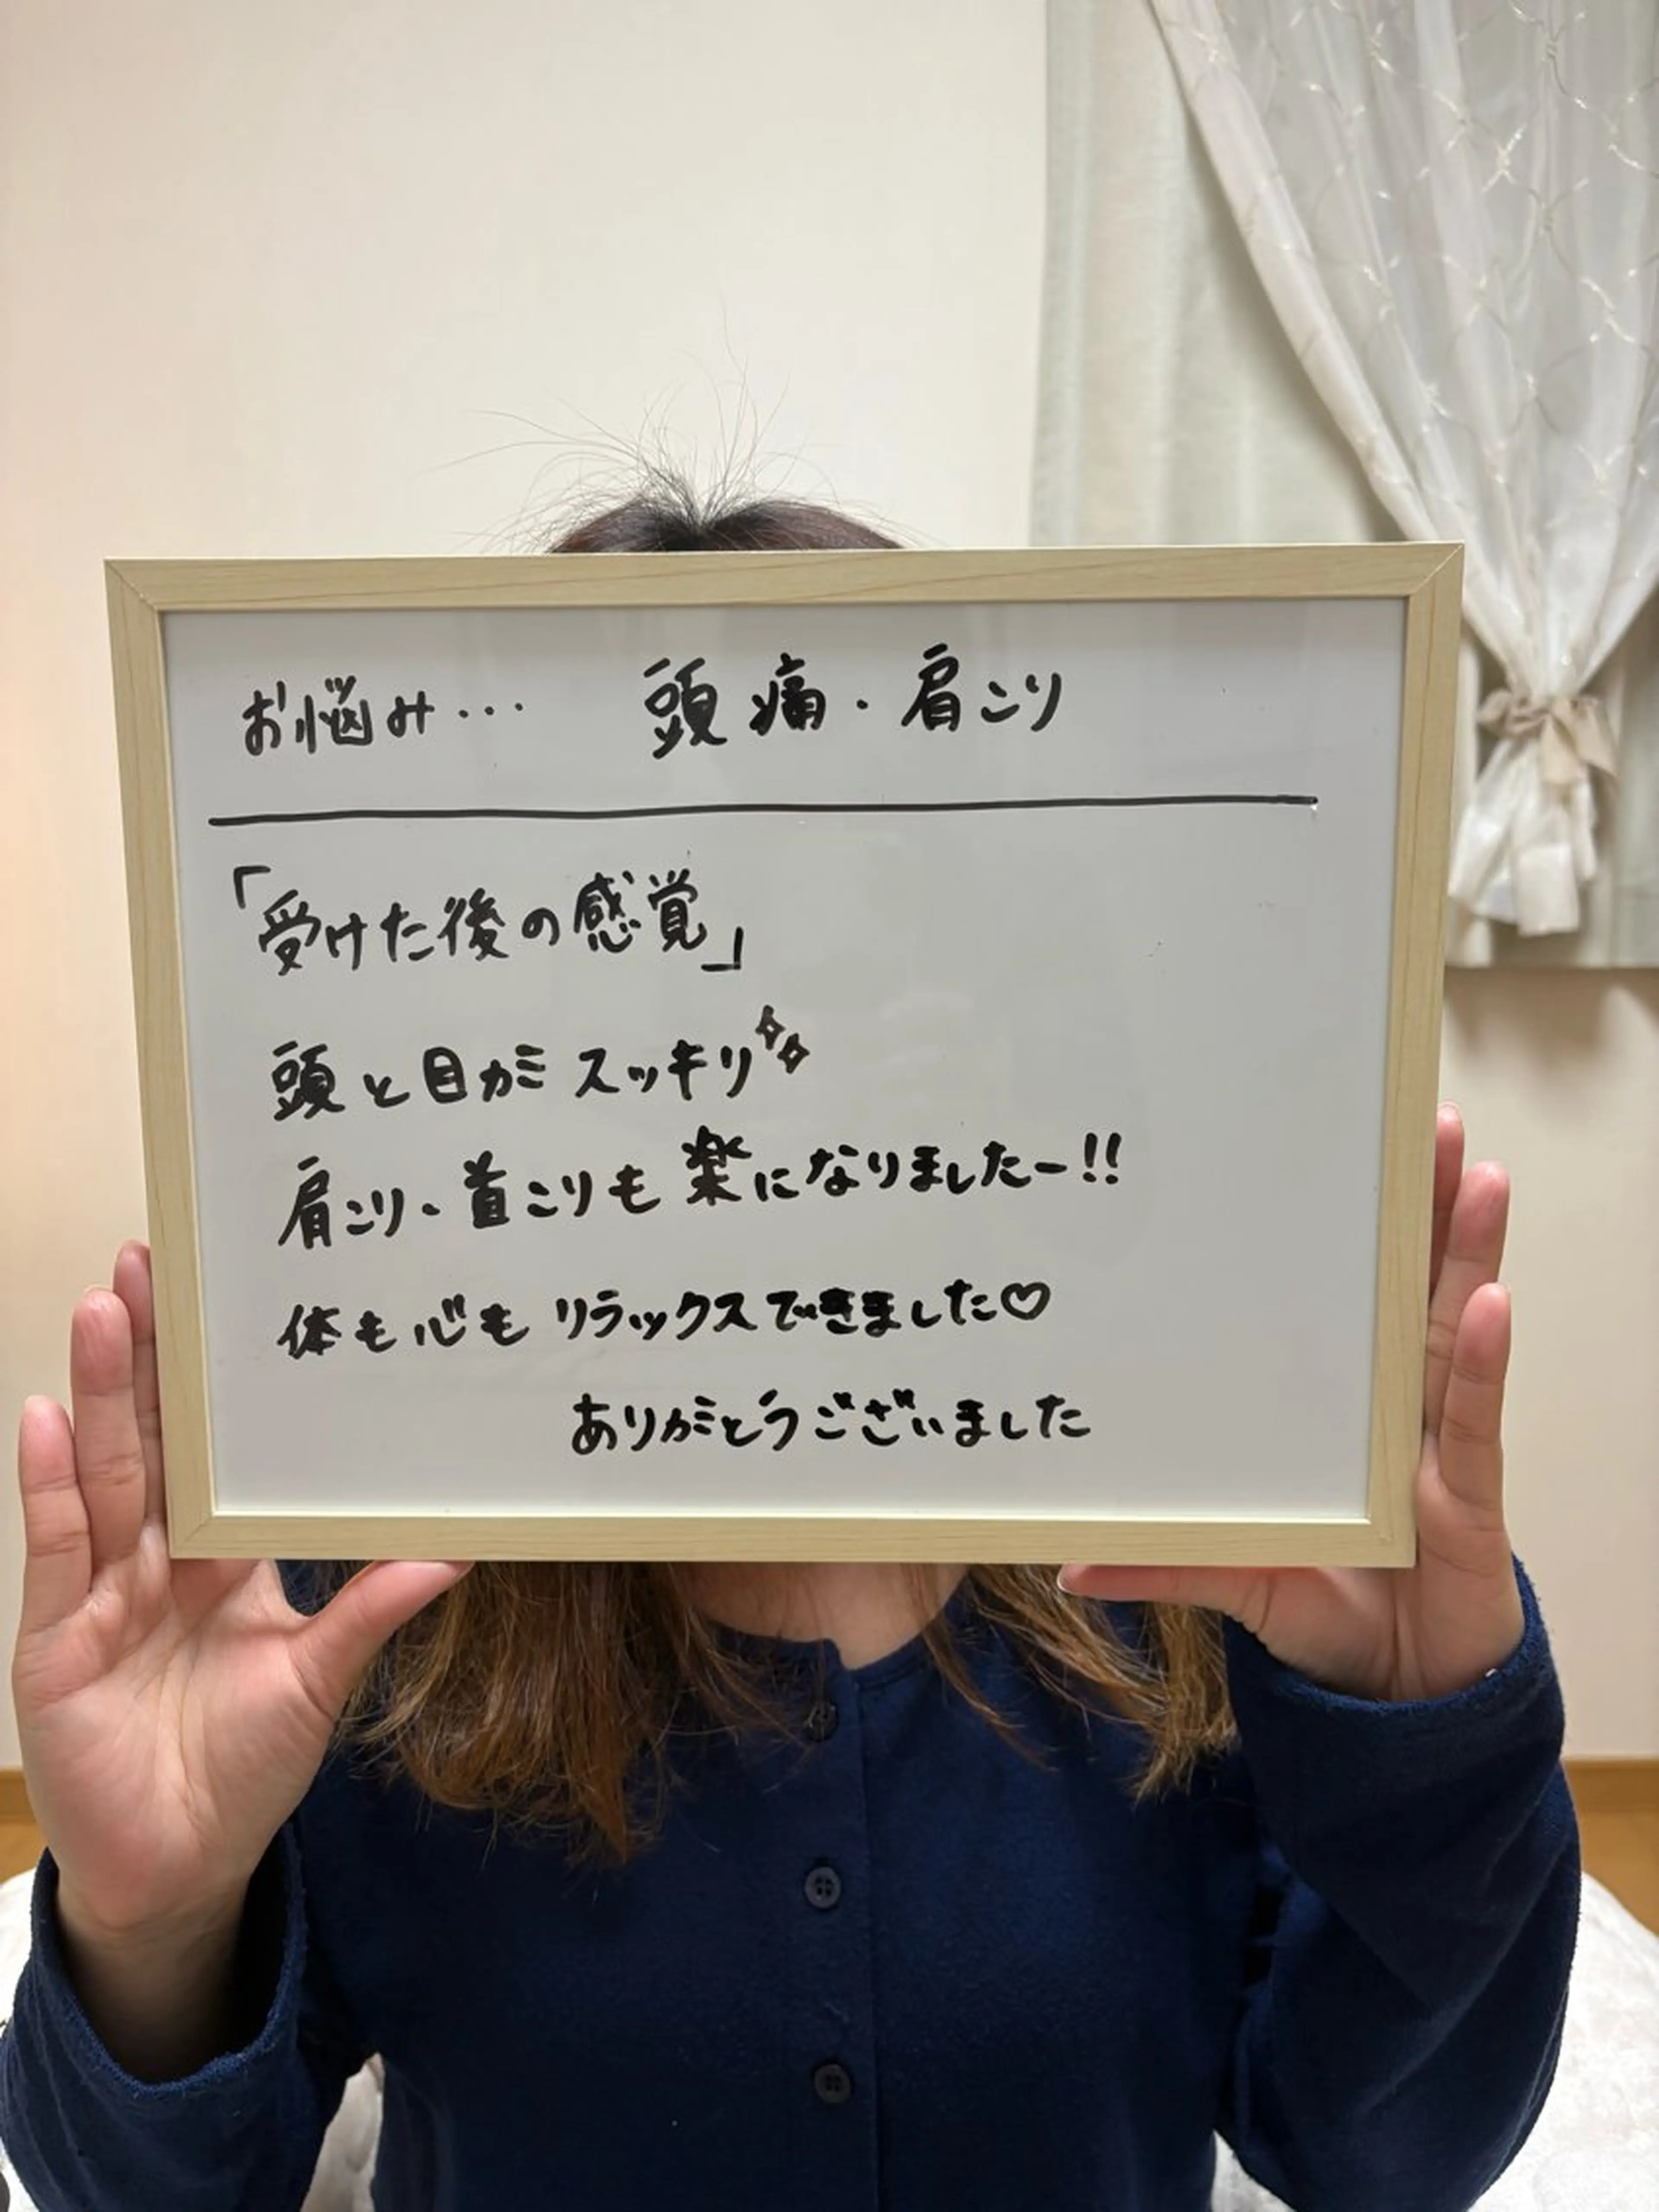 お悩み… 頭痛・肩こり
「受けた後の感覚」
頭と目がスッキリ✨
肩こり・首こりも楽になりましたー!!
体も心もリラックスできました♡
ありがとうございました